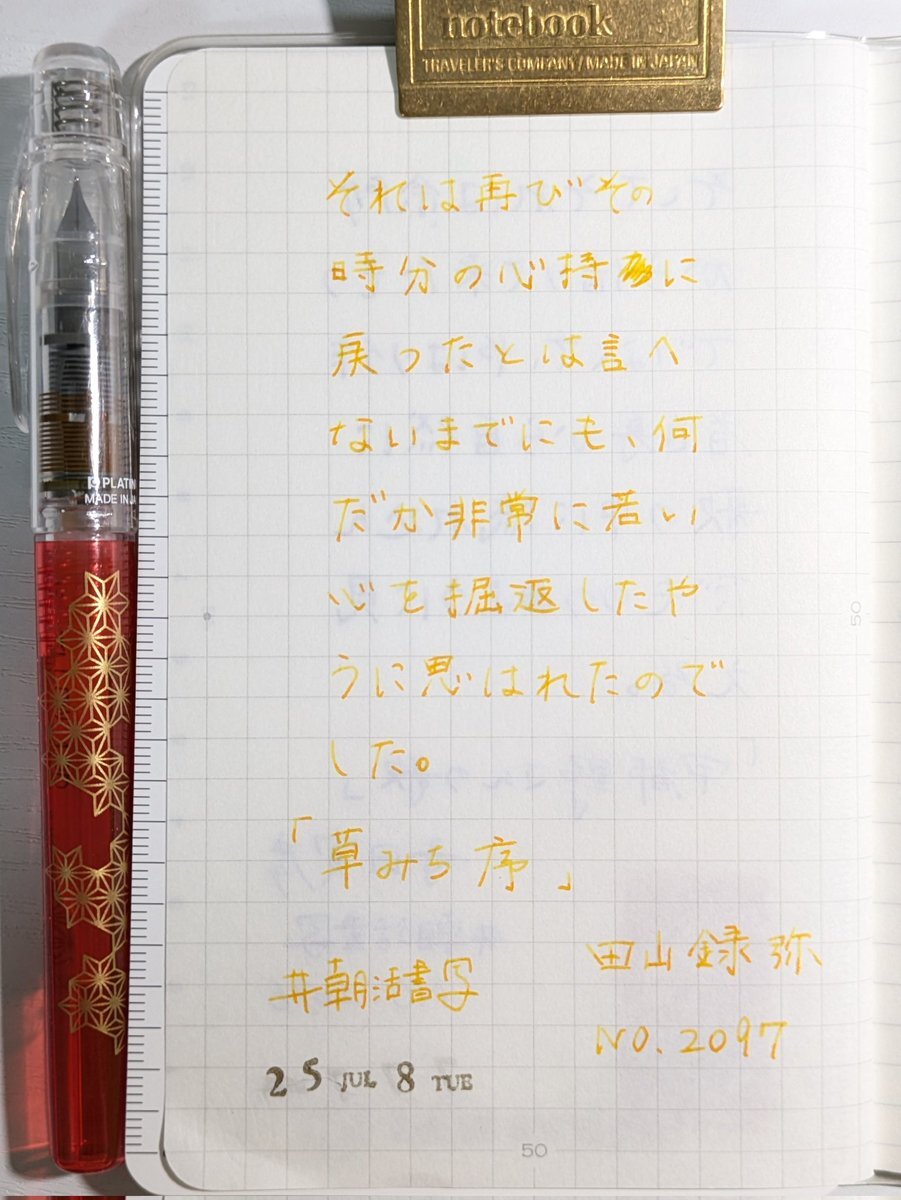 notebook
TRAVELER'S COMPANY/MADE IN JAPAN
それは再びその
時分の心持に
戻ったとは言へ
ないまでにも、何
だか非常に若い
心を掘返したや
うに思はれたので
した。
「草みち 序」
田山録弥
#朝活書写
NO.2097
25 JUL 8 TUE
PLATIN
MADE IN JA
50
50